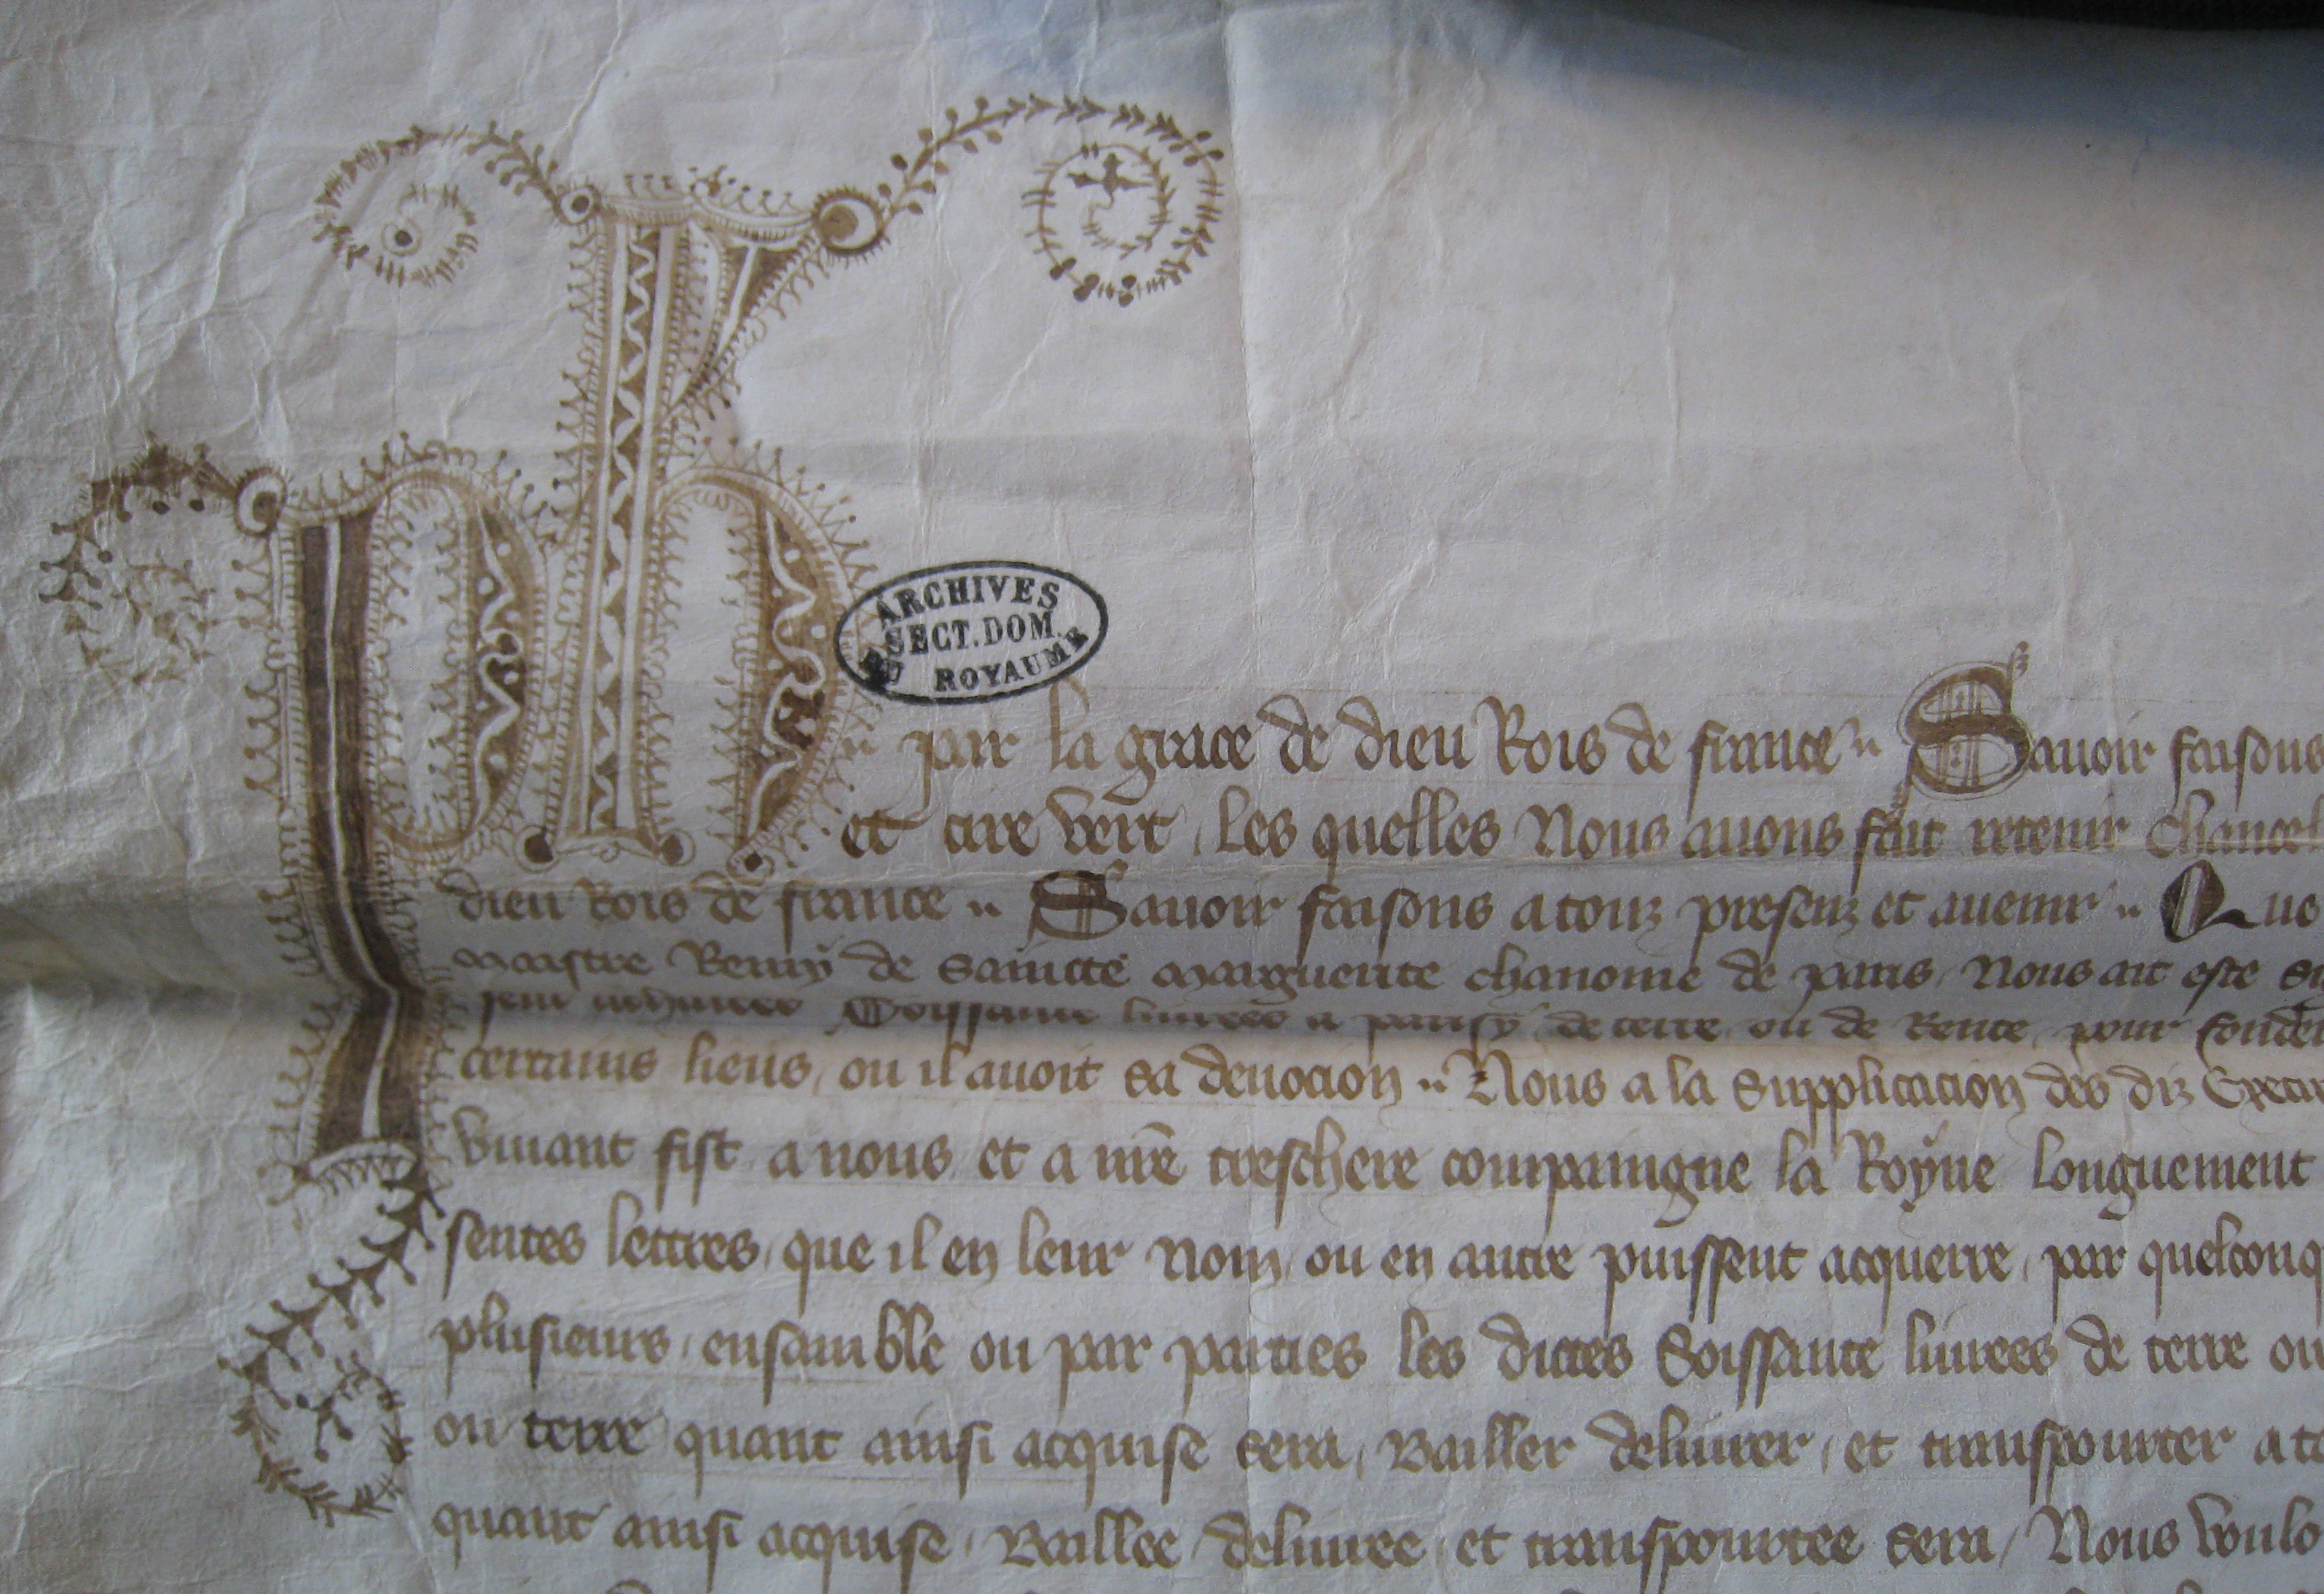 Ph
ARCHIVES
SECT. DOM.
DU ROYAUME
par la grace de dieu Rois de france Sauoir faisons
et cire vert, les quelles Nous auons fait retenir chancel
dieu Rois de france Sauoir faisons a touz presenz et auenir Que
maistre Remy de saincte marguerite chanoine de paris, Nous ait este su
Soissante liurees a parisy de terre ou de Rente, pour fonder
certains lieus, ou il auoit sa deuocion Nous a la supplicacion des diz Execu
viuant fist a nous et a nre treschere compaingne la Royne longuement
sentes lettres, que il en leur nom, ou en autre puissent acquerre, par quelconq
plusieurs, ensamble ou par parties les dictes Soissante liurees de terre ou
ou terre quant ainsi acquise sera, Bailler deliurer, et transpourter a to
quant ainsi acquise, Baillee deliuree et transpourtee sera, Nous voulo